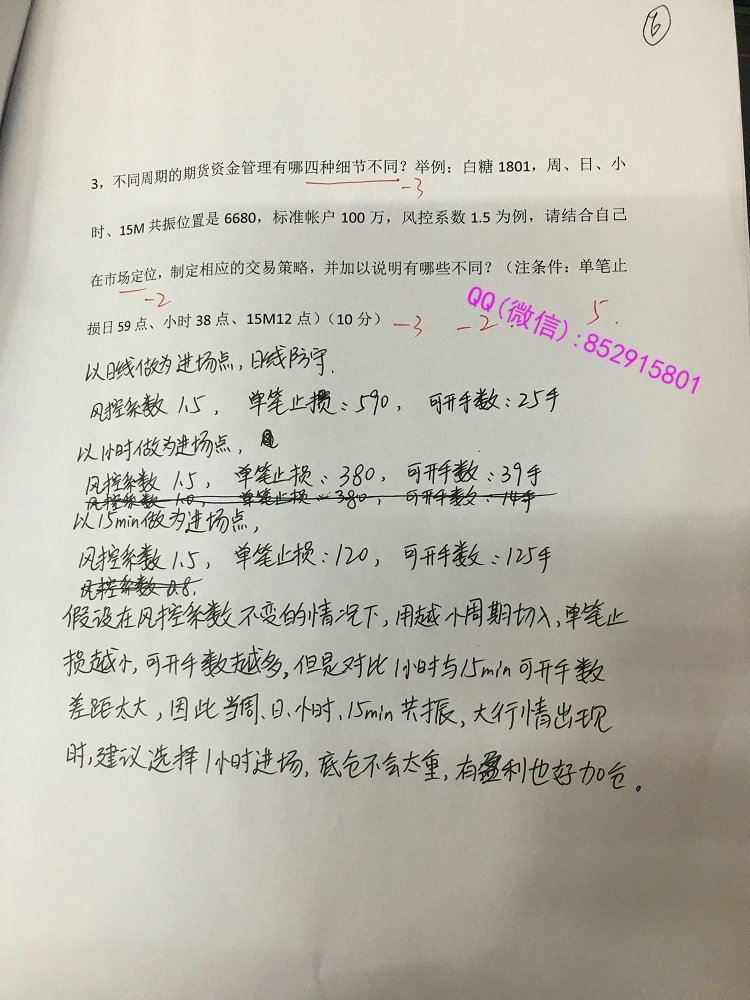 6
3，不同周期的期货资金管理有哪四种细节不同？举例：白糖 1801，周、日、小
-3
时、15M 共振位置是 6680，标准帐户 100 万，风控系数 1.5 为例，请结合自己
在市场定位，制定相应的交易策略，并加以说明有哪些不同？（注条件：单笔止
-2
QQ(微信):852915801
损日 59 点、小时 38 点、15M12 点）（10 分）
-3 -2 5.
以日线做为进场点，日线防守.
风控系数 1.5， 单笔止损：590， 可开手数：25手
以1小时做为进场点，
风控系数 1.5， 单笔止损：380， 可开手数：39手
风控系数 1.0， 单笔止损：380， 可开手数：14手
以15min做为进场点，
风控系数 1.5， 单笔止损：120， 可开手数：125手
风控系数 0.8.
假设在风控系数不变的情况下，用越小周期切入，单笔止
损越小，可开手数越多，但是对比1小时与15min可开手数
差距太大，因此当周、日、小时、15min共振，大行情出现
时，建议选择1小时进场，底仓不会太重，有盈利也好加仓。